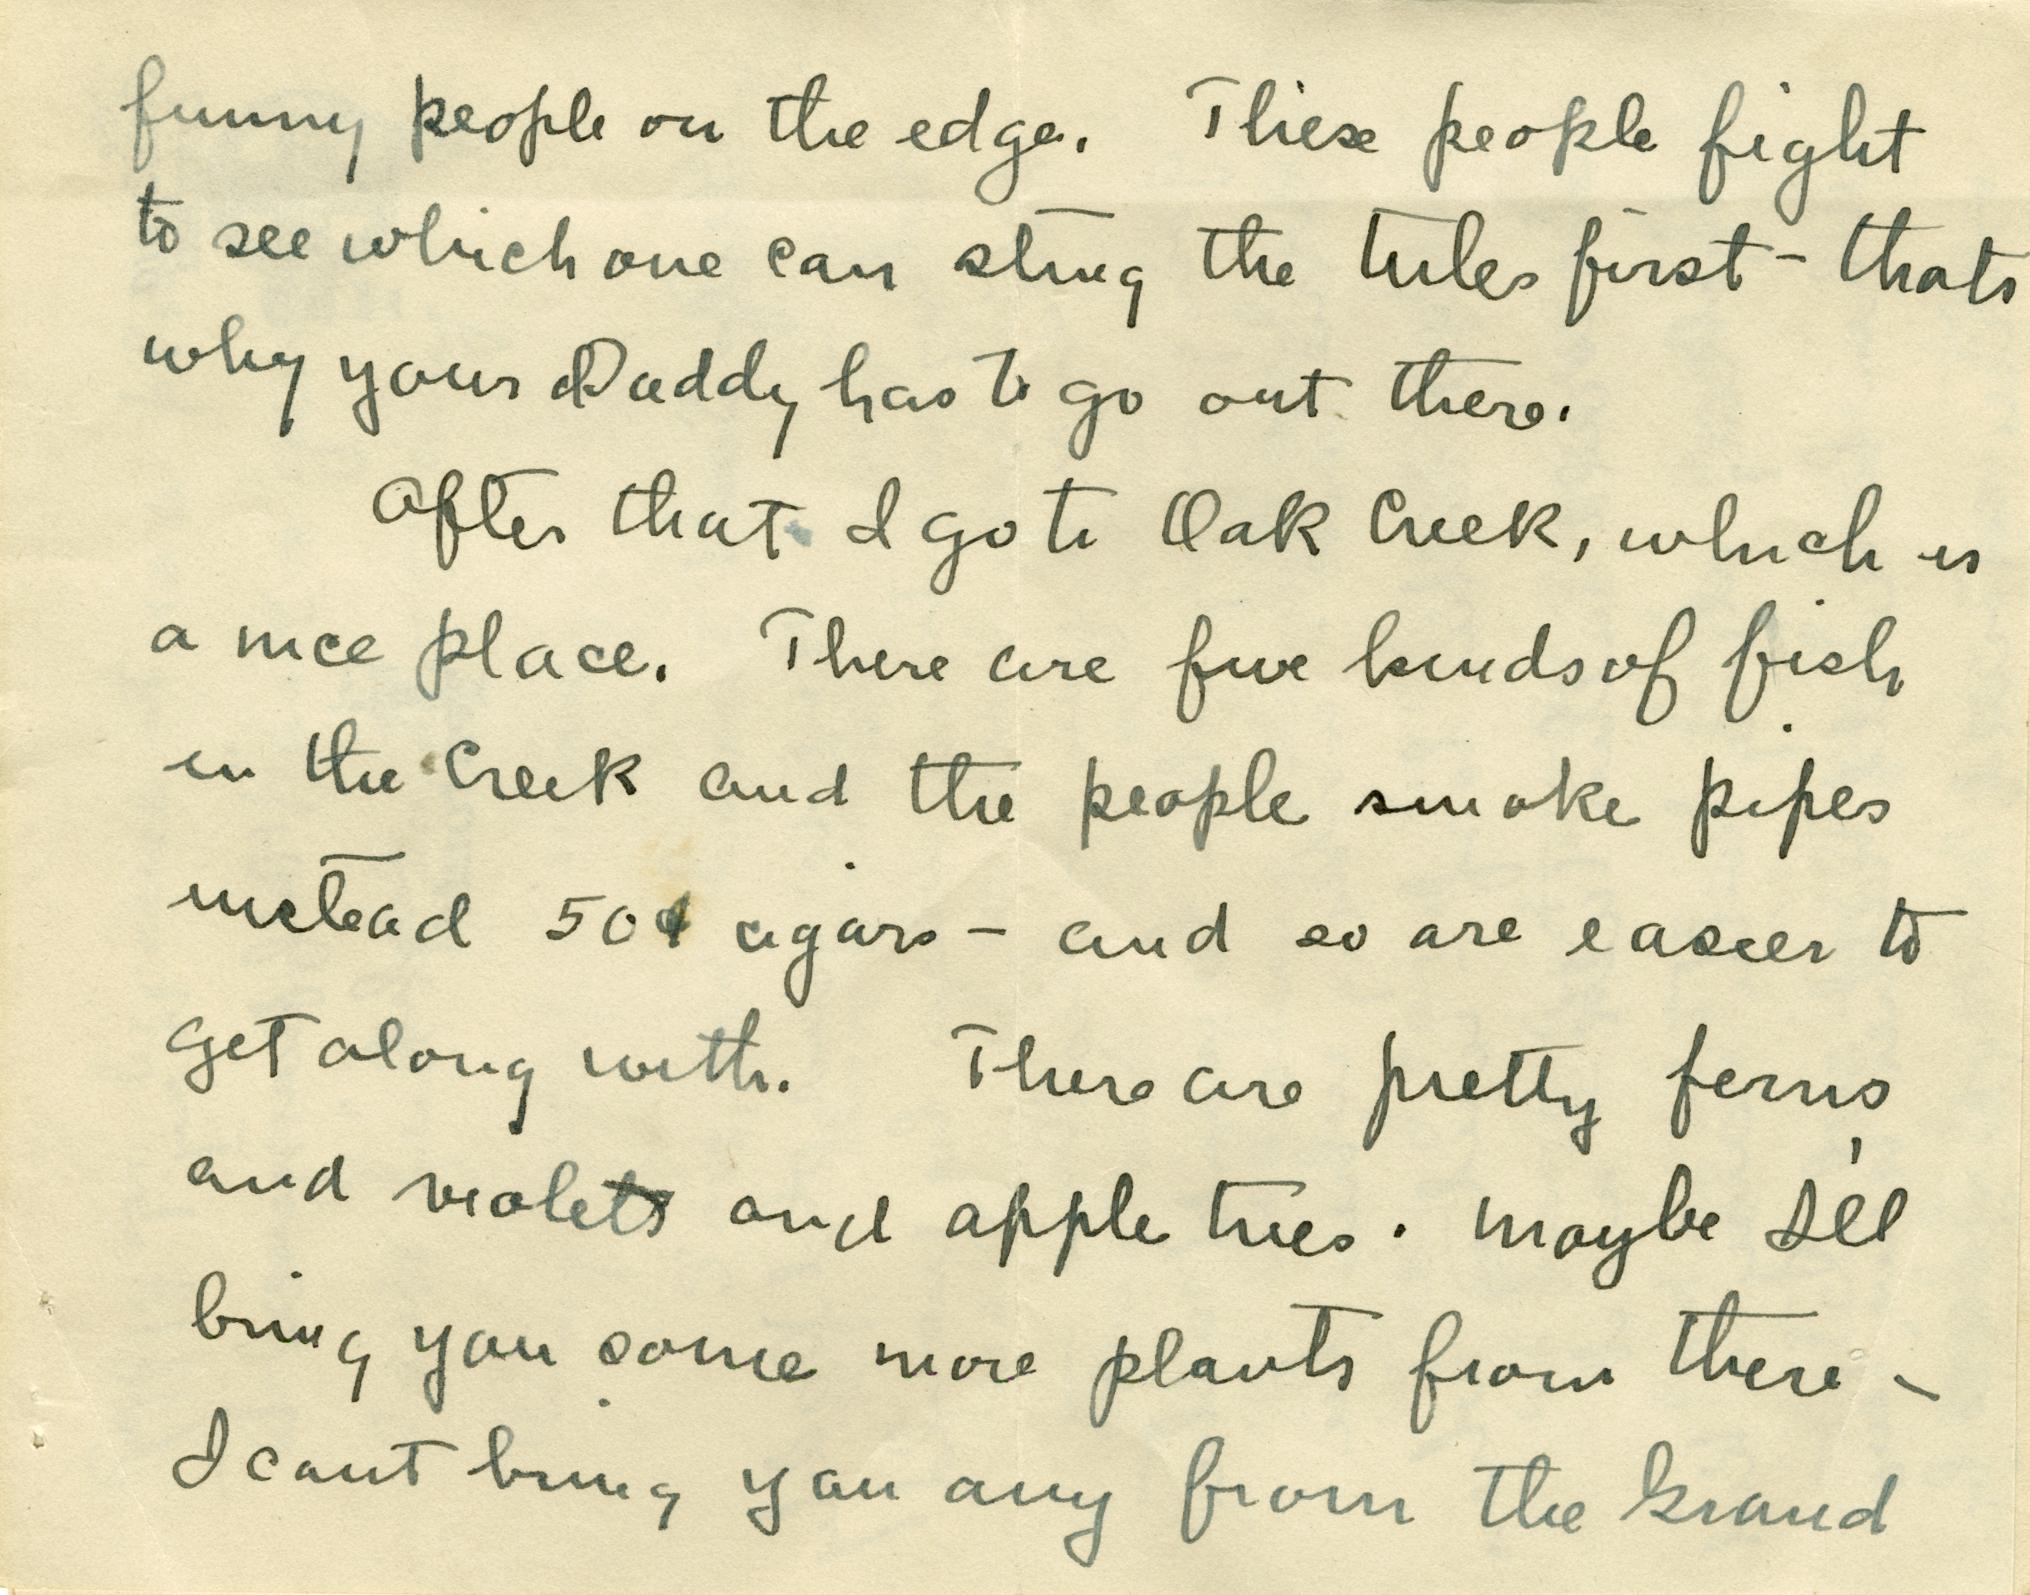 funny people on the edge. These people fight
to see which one can sting the first – thats
why your Daddy has to go out there.
After that I go to Oak Creek, which is
a nice place. There are five kinds of fish
in the Creek and the people smoke pipes
instead 50¢ cigars – and so are easier to
get along with. There are pretty ferns
and violets and apple trees. Maybe I'll
bring you some more plants from there –
I cant bring you any from the Grand